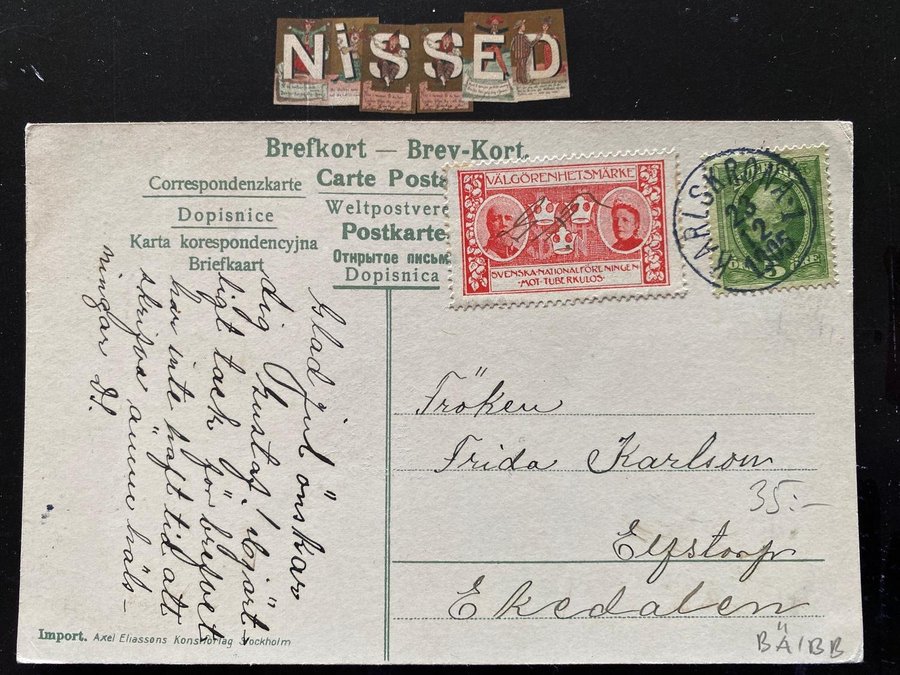 NiSSED
Brefkort — Brev-Kort.
Correspondenzkarte
Carte Posta
Dopisnice
Weltpostvere
Karta korespondencyjna
Postkarte
Briefkaart
Открытое письм
Dopisnica
VÄLGÖRENHETSMÄRKE
SVENSKA·NATIONALFÖRENINGEN
·MOT·TUBERKULOS·
KARLSKRONA·1
23
12
1905
5
Glad jul önskar
dig Gustaf. Hjärt-
ligt tack för brefvet
har inte haft tid att
skrifva ännu häls-
ningar
Fröken
Frida Karlson
35:-
Elfstorp
Ekedalen
BÄ/BB
Import. Axel Eliassons Konstförlag Stockholm